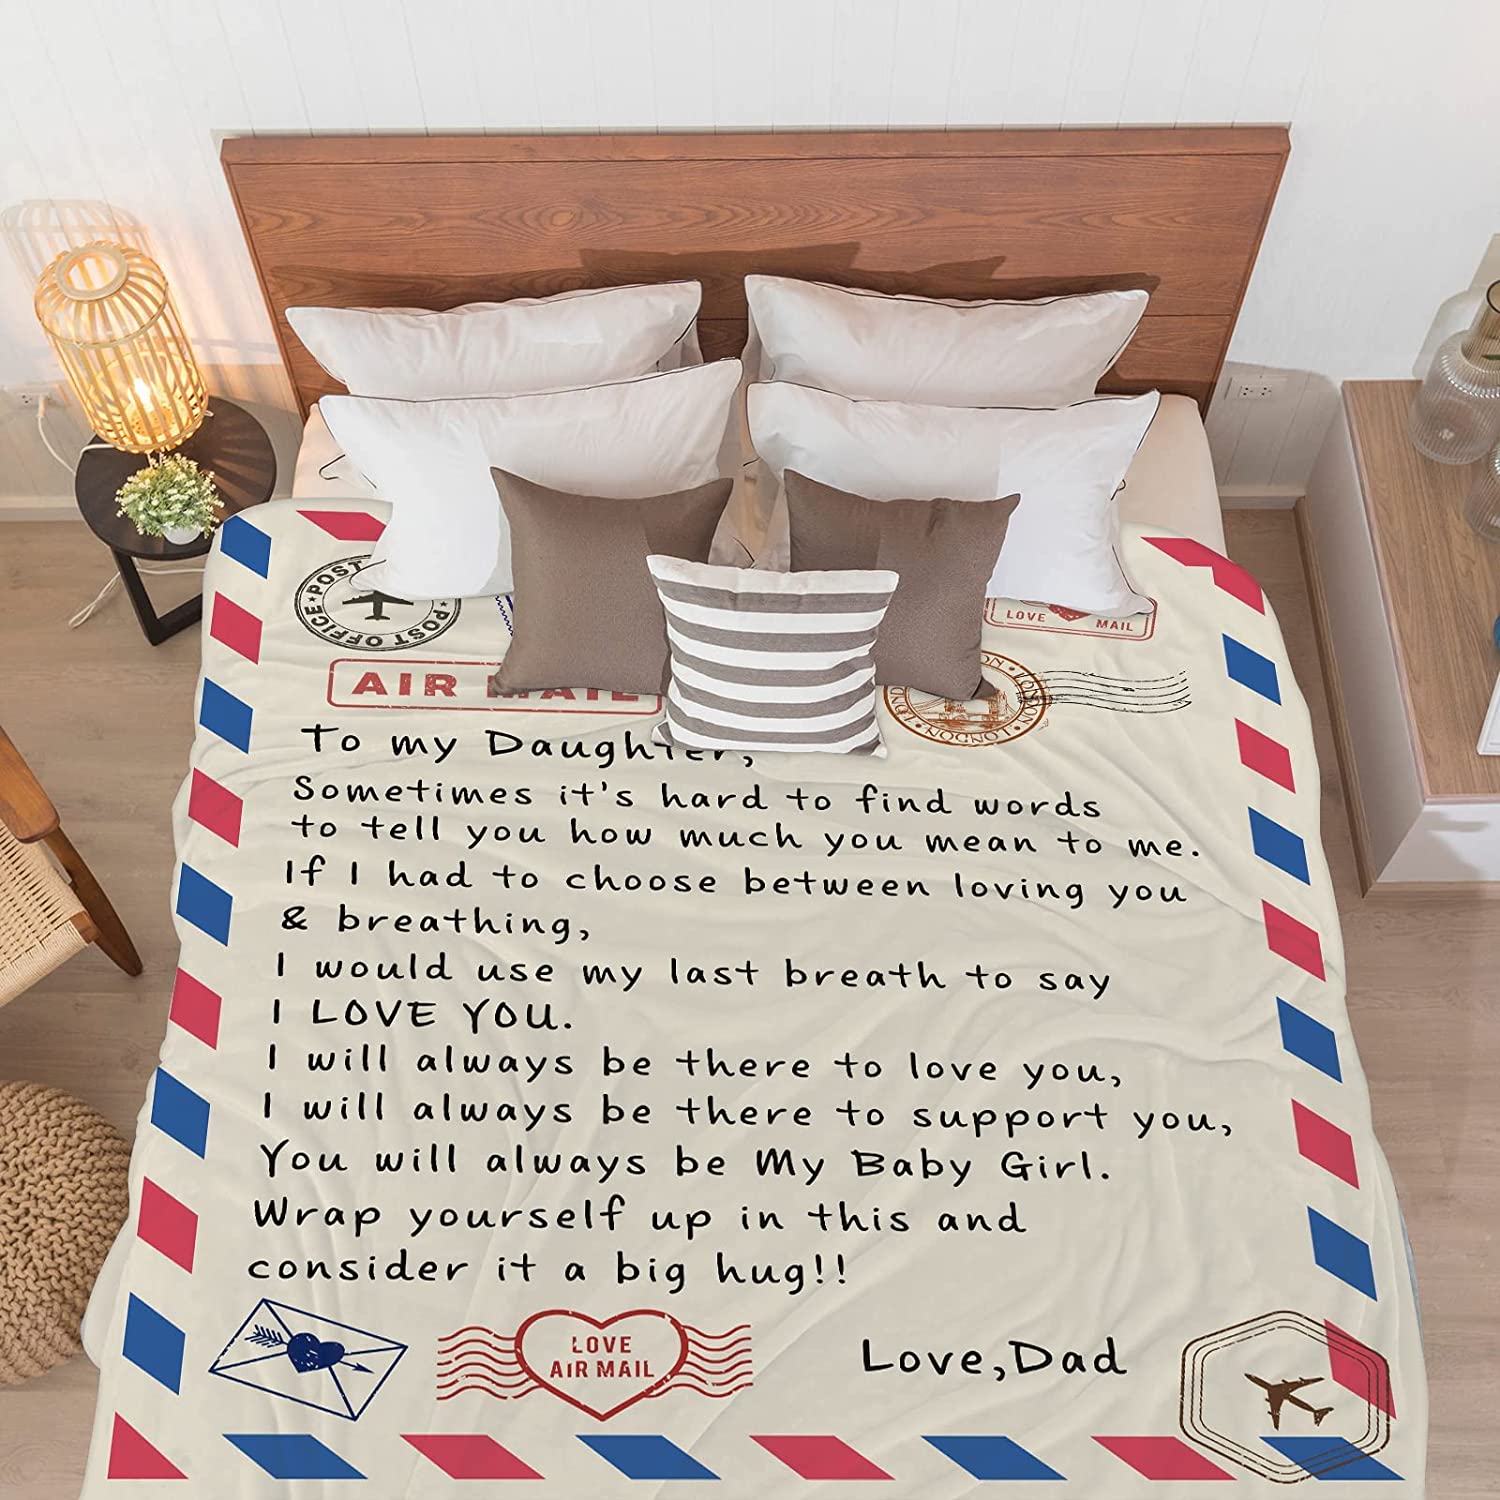 POST OFFICE
POST
AIR MAIL
LOVE MAIL
LONDON
LONDON
To my Daughter,
Sometimes it's hard to find words
to tell you how much you mean to me.
If I had to choose between loving you
& breathing,
I would use my last breath to say
I LOVE YOU.
I will always be there to love you,
I will always be there to support you,
You will always be My Baby Girl.
Wrap yourself up in this and
consider it a big hug!!
LOVE
AIR MAIL
Love,Dad